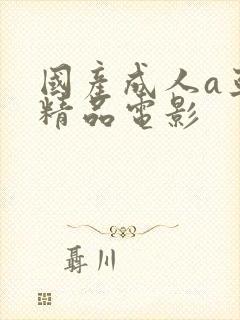 國產成人a
精品電影
聶川